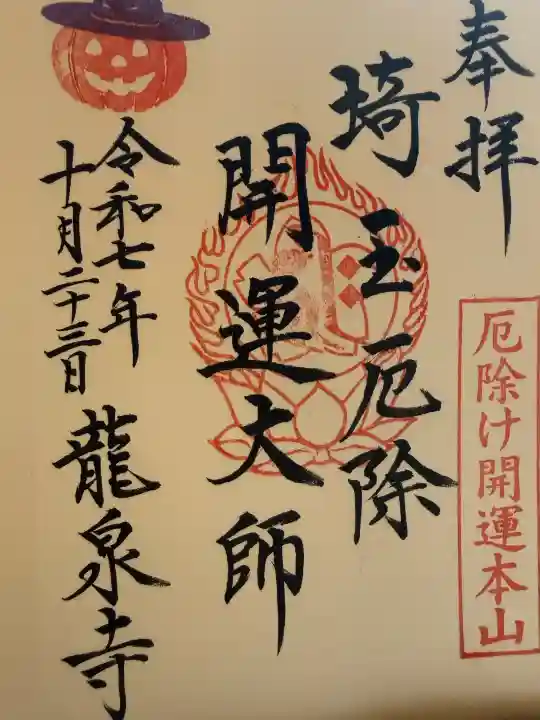 奉拝
厄除け開運本山
埼玉厄除
開運大師
令和七年
十月二十三日
龍泉寺